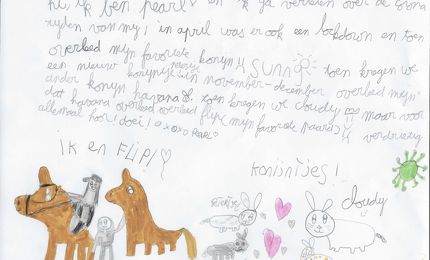 hi, ik ben pearl en ik ga vertelen over de corona
tijden van my! in april was er ook een lockdown en toen
overleed mijn favorite konijn, SUNNY toen kregen we
een nieuw konijntje in november-december overleed mijn
ander konijn havana. toen kregen we cloudy maar voor
dat havana overleed overleed flip (mijn favoriete paard) verdrietig
allemaal hoor! doei! xoxo Pearl
Ik en FLIP!
konijntjes!
cloudy